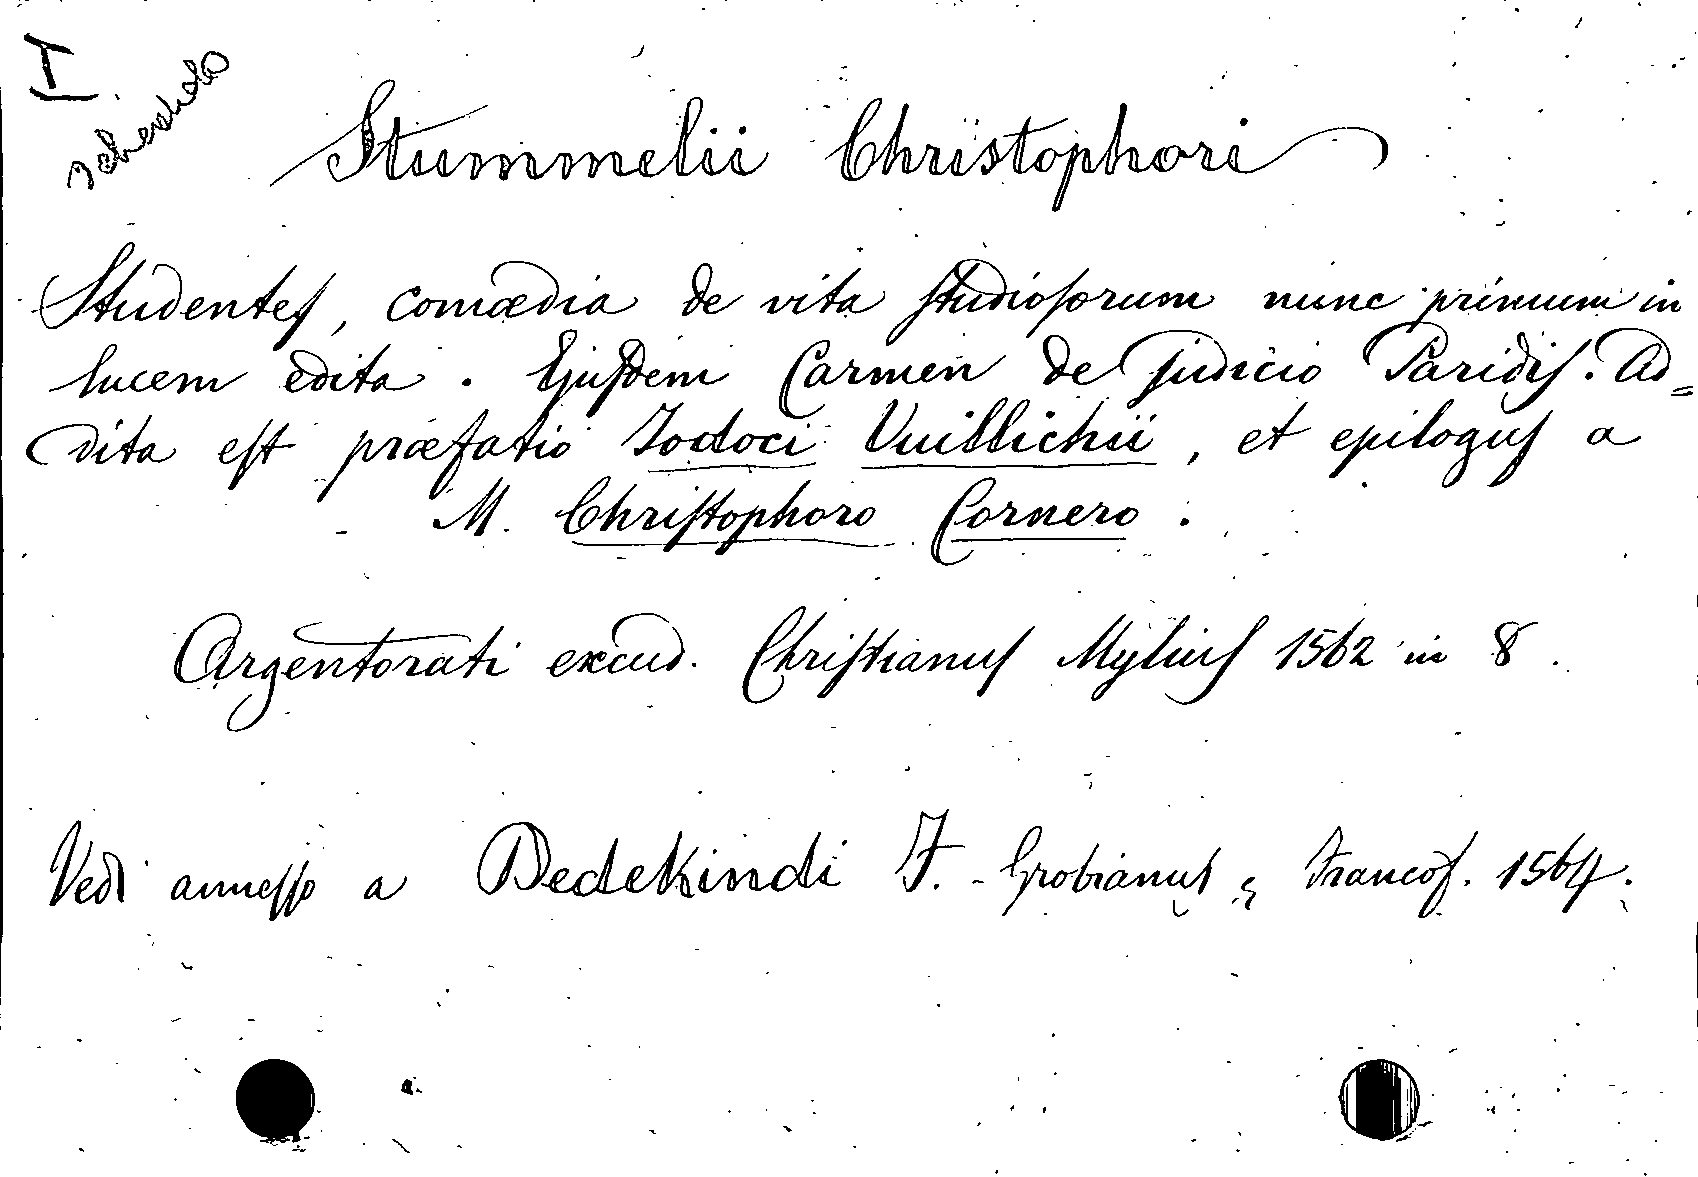 I
schedato
Stummelii Christophori
Studentes, comœdia de vita studiosorum nunc primum in
lucem edita. Ejusdem Carmen de judicio Paridis. Ad=
dita est præfatio Jodoci Vuillichii, et epilogus a
M. Christophoro Cornero.
Argentorati excud. Christianus Mylius 1562 in 8.
Vedi annesso a Dedekindi F. - Grobianus, Francof. 1564.